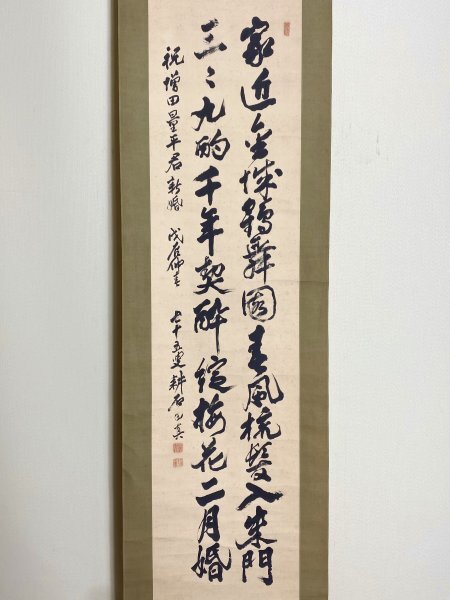 家近金城鶴舞園春風梳髪入朱門
三〻九酌千年契酔綻梅花二月婚
祝増田量平君新婚 戊辰仲春 七十五叟耕石